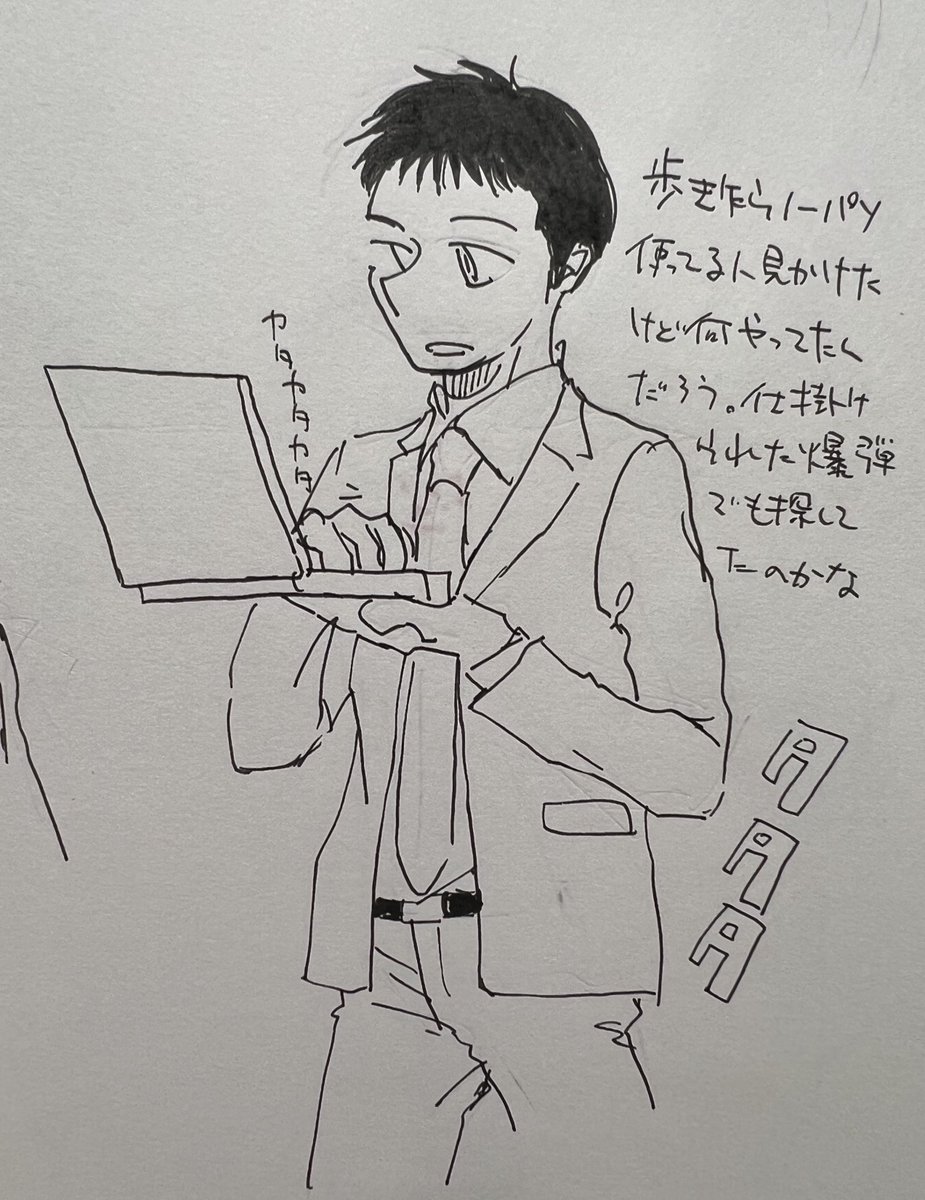 カタカタカタ
歩きながらノーパソ
使ってる人見かけた
けど何やってたん
だろう。仕掛け
られた爆弾
でも探して
たのかな